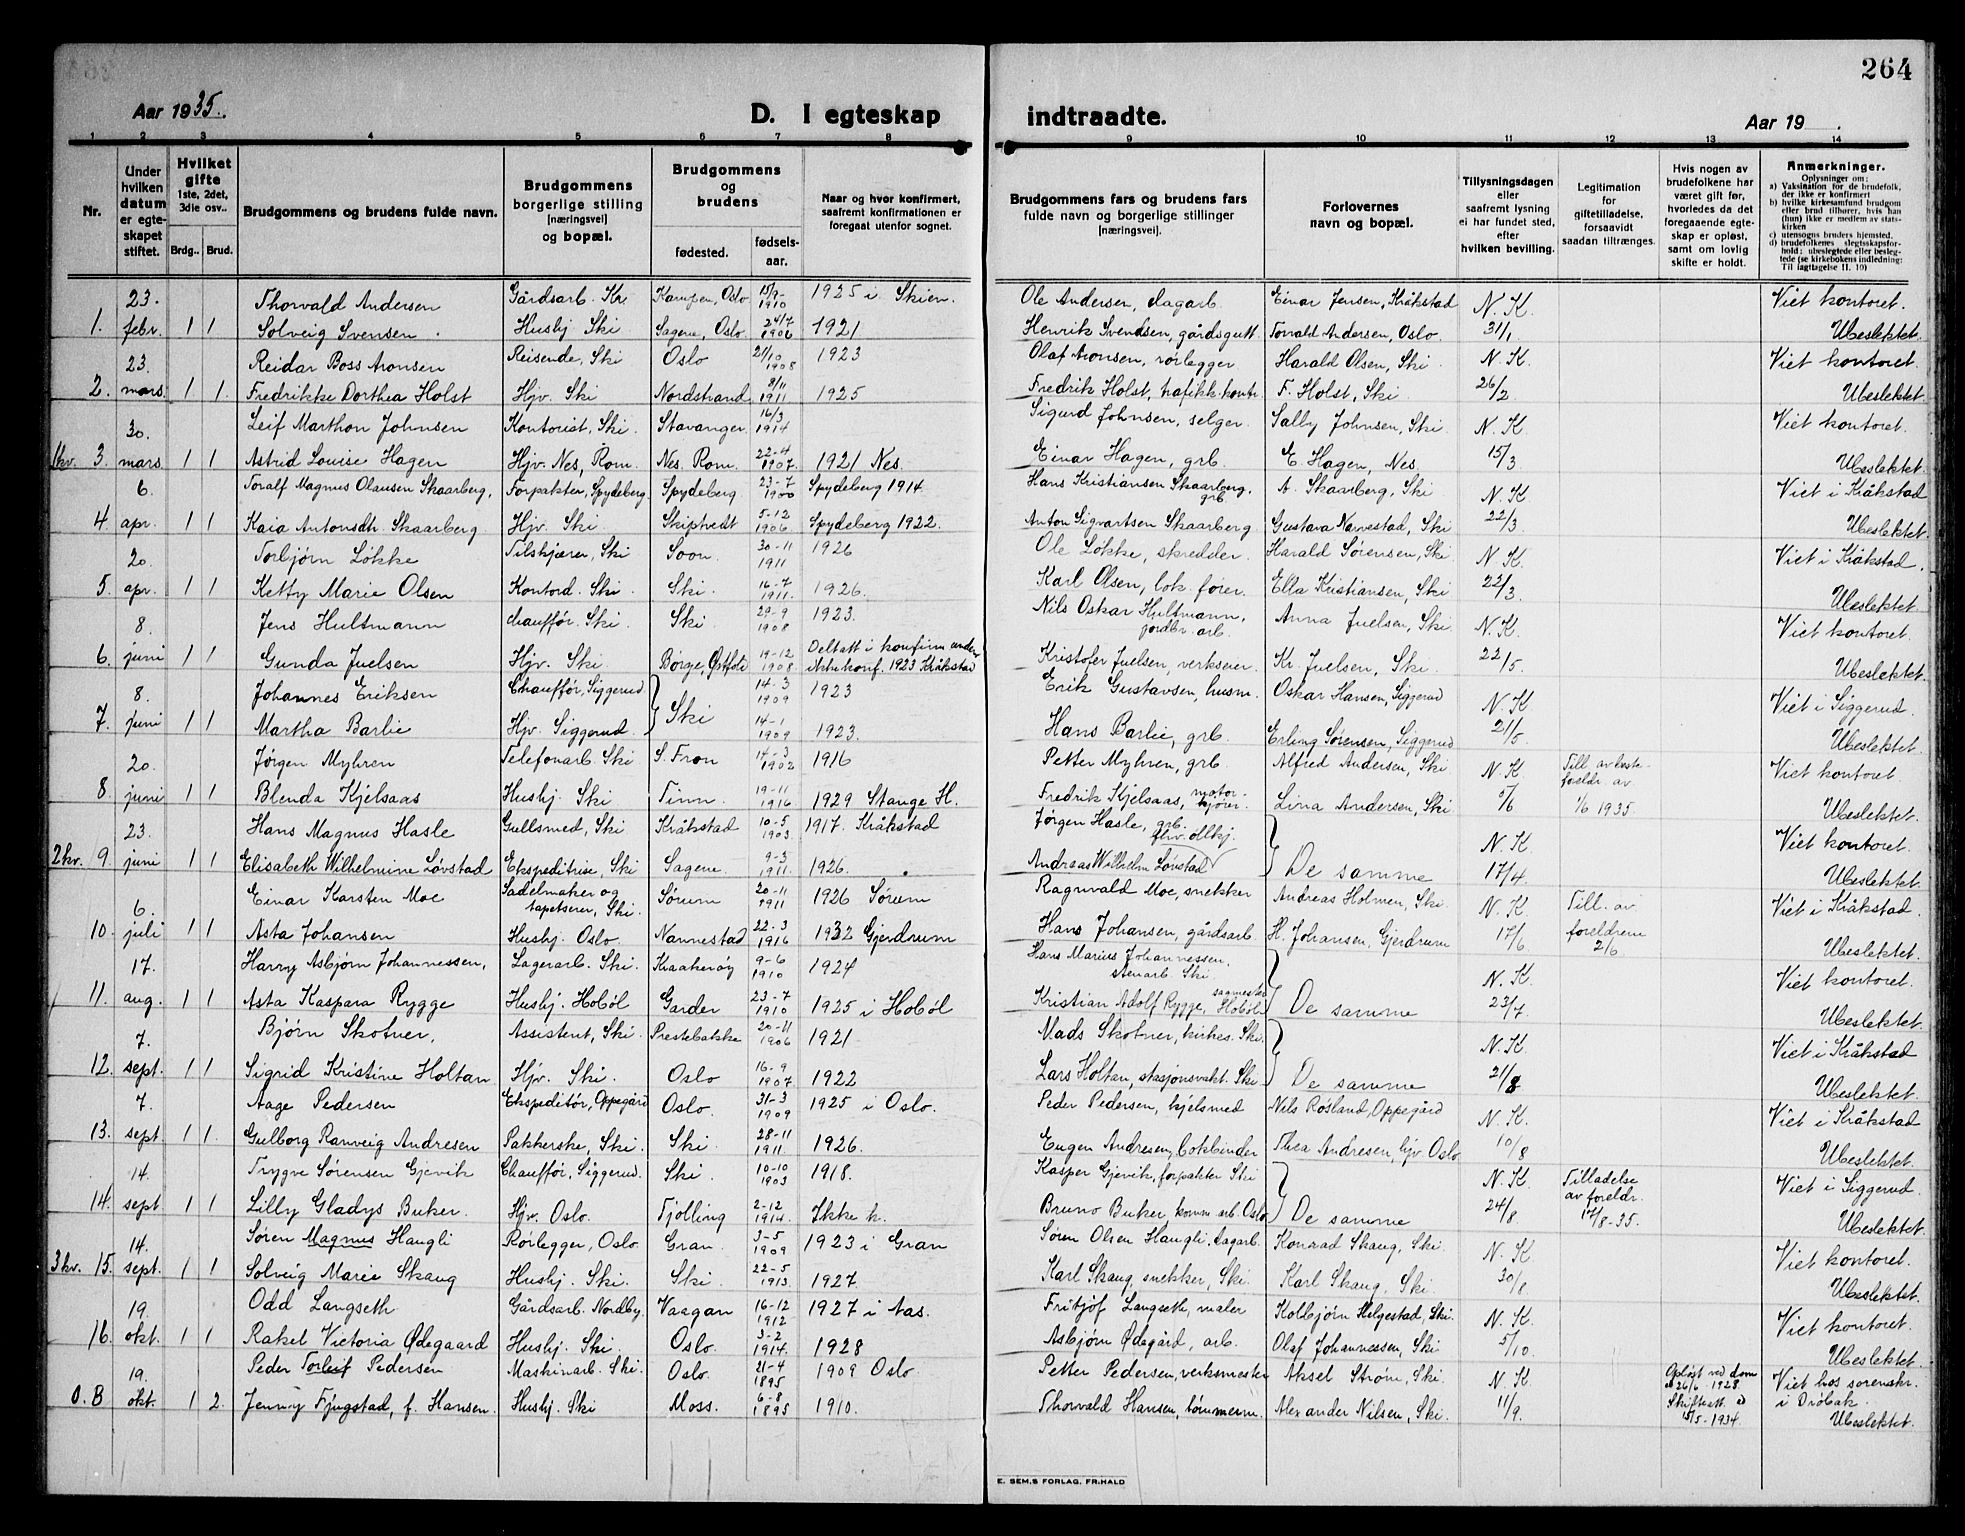 264
Aar 1935.
D. I egteskap indtraadte.
Aar 19 .
1 2 3 4 5 6 7 8 9 10 11 12 13 14
Nr.
Under hvilken datum er egteskapet stiftet.
Hvilket gifte 1ste, 2det, 3die osv..
Brdg.. Brud.
Brudgommens og brudens fulde navn.
Brudgommens borgerlige stilling [næringsvei] og bopæl.
Brudgommens og brudens
fødested. fødsels-aar.
Naar og hvor konfirmert, saafremt konfirmationen er foregaat utenfor sognet.
Brudgommens fars og brudens fars fulde navn og borgerlige stillinger [næringsvei].
Forlovernes navn og bopæl.
Tillysningsdagen eller saafremt lysning ei har fundet sted, efter hvilken bevilling.
Legitimation for giftetilladelse, forsaavidt saadan tiltrænges.
Hvis nogen av brudefolkene har været gift før, hvorledes da det foregaaende egteskap er opløst, samt om lovlig skifte er holdt.
Anmerkninger.
Oplysninger om:
a) Vaksination for de brudefolk, der ikke er konfirmert
b) hvilke kirkesamfund brudgom eller brud tilhører, hvis han (hun) ikke er medlem av statskirken
c) utensogns bruders hjemsted.
d) brudefolkenes slegtsskapsforhold: ubeslegtede eller beslegtede (se kirkebokens indledning: Til iagttagelse II. 10)
23. Thorvald Andersen Gårdsarb. Kr. Kampen, Oslo 15/9-1910 1925 i Skien. Ole Andersen, dagarb. Einar Jensen, Kråkstad N. K. Viet kontoret.
1. febr. 1 1 Solveig Svensen. Hushj Ski Sagene, Oslo. 24/7 1906 1921 Henrik Svendsen, gårdsgutt Torvald Andersen, Oslo. 31/1 Ubeslektet.
23. Reidar Boss Aronsen Reisende, Ski Oslo 21/10 1908 1923 Olaf Aronsen, rørlegger Harald Olsen, Ski N. K. Viet kontoret.
2. mars 1 1. Fredrikke Dorthea Holst Hjv. Ski Nordstrand 8/11 1911 1925 Fredrik Holst, trafikk.kontr. F. Holst, Ski. 26/2 Ubeslektet.
30. Leif Marthon Johnsen Kontorist, Ski. Stavanger. 16/3 1914 Sigurd Johnsen, selger. Sally Johnsen, Ski N. K. Viet kontoret.
1kv. 3. mars 1 1 Astrid Louise Hagen Hjv. Nes, Rom. Nes. Rom. 22-4 1907. 1921 Nes. Einar Hagen, grb. E. Hagen, Nes. 15/3 Ubeslektet
6. Toralf Magnus Olausen Skaarberg, Forpakter, Spydeberg Spydeberg 23-7 1900 Spydeberg 1914. Hans Kristiansen Skaarberg, grb. A. Skaarberg, Ski N. K Viet i Kråkstad
4 apr. 1 1 Kaia Antonsdtr. Skaarberg Hjv. Ski Skiptvedt 5-12 1906 Spydeberg 1922. Anton Sigvartsen Skaarberg Gustava Narvestad, Ski 22/3 Ubeslektet.
20. Torbjørn Løkke Tilskjærer, Ski Soon. 30-11 1911 1926 Ole Løkke, skredder. Harald Sørensen, Ski N K. Viet i Kråkstad.
5. apr. 1 1 Ketty Marie Olsen Kontord. Ski Ski. 16-7 1911. 1926. Karl Olsen, lok. fører. Ella Kristiansen, Ski 22/3. Ubeslektet.
8. Jens Hultmann chauffør. Ski. Ski. 29-9 1908 1923. Nils Oskar Hultmann, jordbr. arb. Anna Juelsen, Ski. N. K. Viet kontoret.
6. juni 1 1 Gunda Juelsen Hjv. Ski. Børge, Østfold 19-12 1908. Deltatt i konfirm.under. Kristofer Juelsen, verkseier. Kr. Juelsen, Ski. 22/5 Ubeslektet.
8. Johannes Eriksen Chauffør, Siggerud Ski 14-3 1909 1923 Erik Gustavsen, husm. Oskar Hansen, Siggerud N. K. Viet i Siggerud.
7. juni 1 1 Martha Barlie Hjv. Siggerud. 14-1 1909 1923. Hans Barlie, grb. Erling Sørensen, Siggerud 21/5. Ubeslektet.
20. Jørgen Myhren Telefonarb. Ski S. Fron 14-3 1902 1916 Petter Myhren, grb Alfred Andersen, Ski. N. K Viet kontoret
8. juni 1 1 Blenda Kjelsaas Hushj. Ski Tinn. 19-11 1916. 1929 Stange H. Fredrik Kjelsaas, Lina Andersen, Ski. 5/6 1/6 1935. Ubeslektet.
23. Hans Magnus Hasle Gullsmed, Ski Kråkstad 10-5 1903. 1917. Kråkstad Jørgen Hasle, grb. N. K. Viet kontoret.
2kv. 9. juni 1 1 Elisabeth Wilhelmine Løvstad Ekspeditrise, Ski Sagene. 9-3 1911. 1926. Andreas Wilhelm Løvstad De samme 17/4. Ubeslektet.
6. Einar Karsten Moe Sadelmaker og tapetserer, Ski. Sørum 20-11 1911 1926 Sørum Ragnvald Moe, snekker Andreas Holmen, Ski. N. K Till. av Viet i Kråkstad.
10. juli 1 1 Asta Johansen Hushj. Oslo. Nannestad 22-3 1916 1932 Gjerdrum Hans Johansen, gårdsarb. H. Johansen, Gjerdrum 17/6. foreldrene 2/6 Ubeslektet.
17. Harry Asbjørn Johannessen, Lagerarb. Ski. Kraakerøy 9-6 1910 1924 Hans Marius Johannessen, stenarb. Ski. N. K. Viet kontoret.
11. aug. 1 1 Asta Kaspara Rygge Hushj. Hobøl Garder 23-7 1910. 1925 i Hobøl Kristian Adolf Rygge, sagmester Hobøl De samme 23/7. Ubeslektet.
7. Bjørn Skotner. Assistent, Ski. Prestebakke 20-11 1906 1921 Mads Skotner, kirkes. Ski. N. K. Viet i Kråkstad
12. sept. 1 1 Sigrid Kristine Holtan Hjv. Ski. Oslo 16-9 1907 1922 Lars Holtan, stasjonsvakt. Ski De samme 21/8 Ubeslektet.
7. Aage Pedersen Ekspeditør, Oppegård Oslo. 31-3 1909 1925 i Oslo. Peder Pedersen, hjelsmed Nils Rosland, Oppegård N. K. Viet i Kråkstad
13. sept 1 1. Gulborg Ranveig Andresen Pakkerske, Ski. Ski 28-11 1911. 1926. Eugen Andresen, bokbinder Thea Andresen, hjv. Oslo 10/8 Ubeslektet.
14. Trygve Sørensen Gjevik Chauffør, Siggerud. Ski. 10-10 1903 1918. Kasper Gjevik, forpakter Ski N. K Tilladelse Viet i Siggerud.
14. sept 1 1 Lilly Gladys Buker. Hjv. Oslo. Tjølling 2-12 1914. Ikke k. Bruno Buker, komm. arb. Oslo De samme 24/8 av foreldr. 17/8-35. Ubeslektet.
14. Søren Magnus Haugli Rørlegger, Oslo Gran. 3-5 1909 1923 i Gran Søren Olsen Haugli, dagarb. Konrad Skaug, Ski. N. K Viet kontoret.
3kv. 15. sept. 1 1 Solveig Marie Skaug Hushj. Ski. Ski. 22-5 1913. 1927 Karl Skaug, snekker, Ski. Karl Skaug, Ski. 30/8. Ubeslektet.
19. Odd Langseth Gårdsarb. Nordby. Vaagan 16-12 1912 1927 i Aas. Fritjof Langseth, maler Kolbjørn Helgestad, Ski. N. K. Viet kontoret.
16. okt. 1 1 Rakel Victoria Ødegaard Hushj. Ski. Oslo. 3-2 1914. 1928 Asbjørn Ødegård, arb. Olaf Johannessen, Ski 5/10. Ubeslektet.
19. Peder Torleif Pedersen Maskinarb. Ski. Oslo. 21-4 1895 1909 Oslo. Petter Pedersen, verksmester Aksel Strøm, Ski. N. K Opløst ved dom 26/6-1928 Viet hos sorenskr. i Drøbak.
0.8 okt. 1 2. Jenny Fjugstad, f. Hansen. Hushj. Ski Moss. 6-8 1895 1910. Thorvald Hansen, tømmerm. Alexander Nilsen, Ski. 11/9. 15/5-1934. Ubeslektet.
E. SEM.S FORLAG, FR:HALD